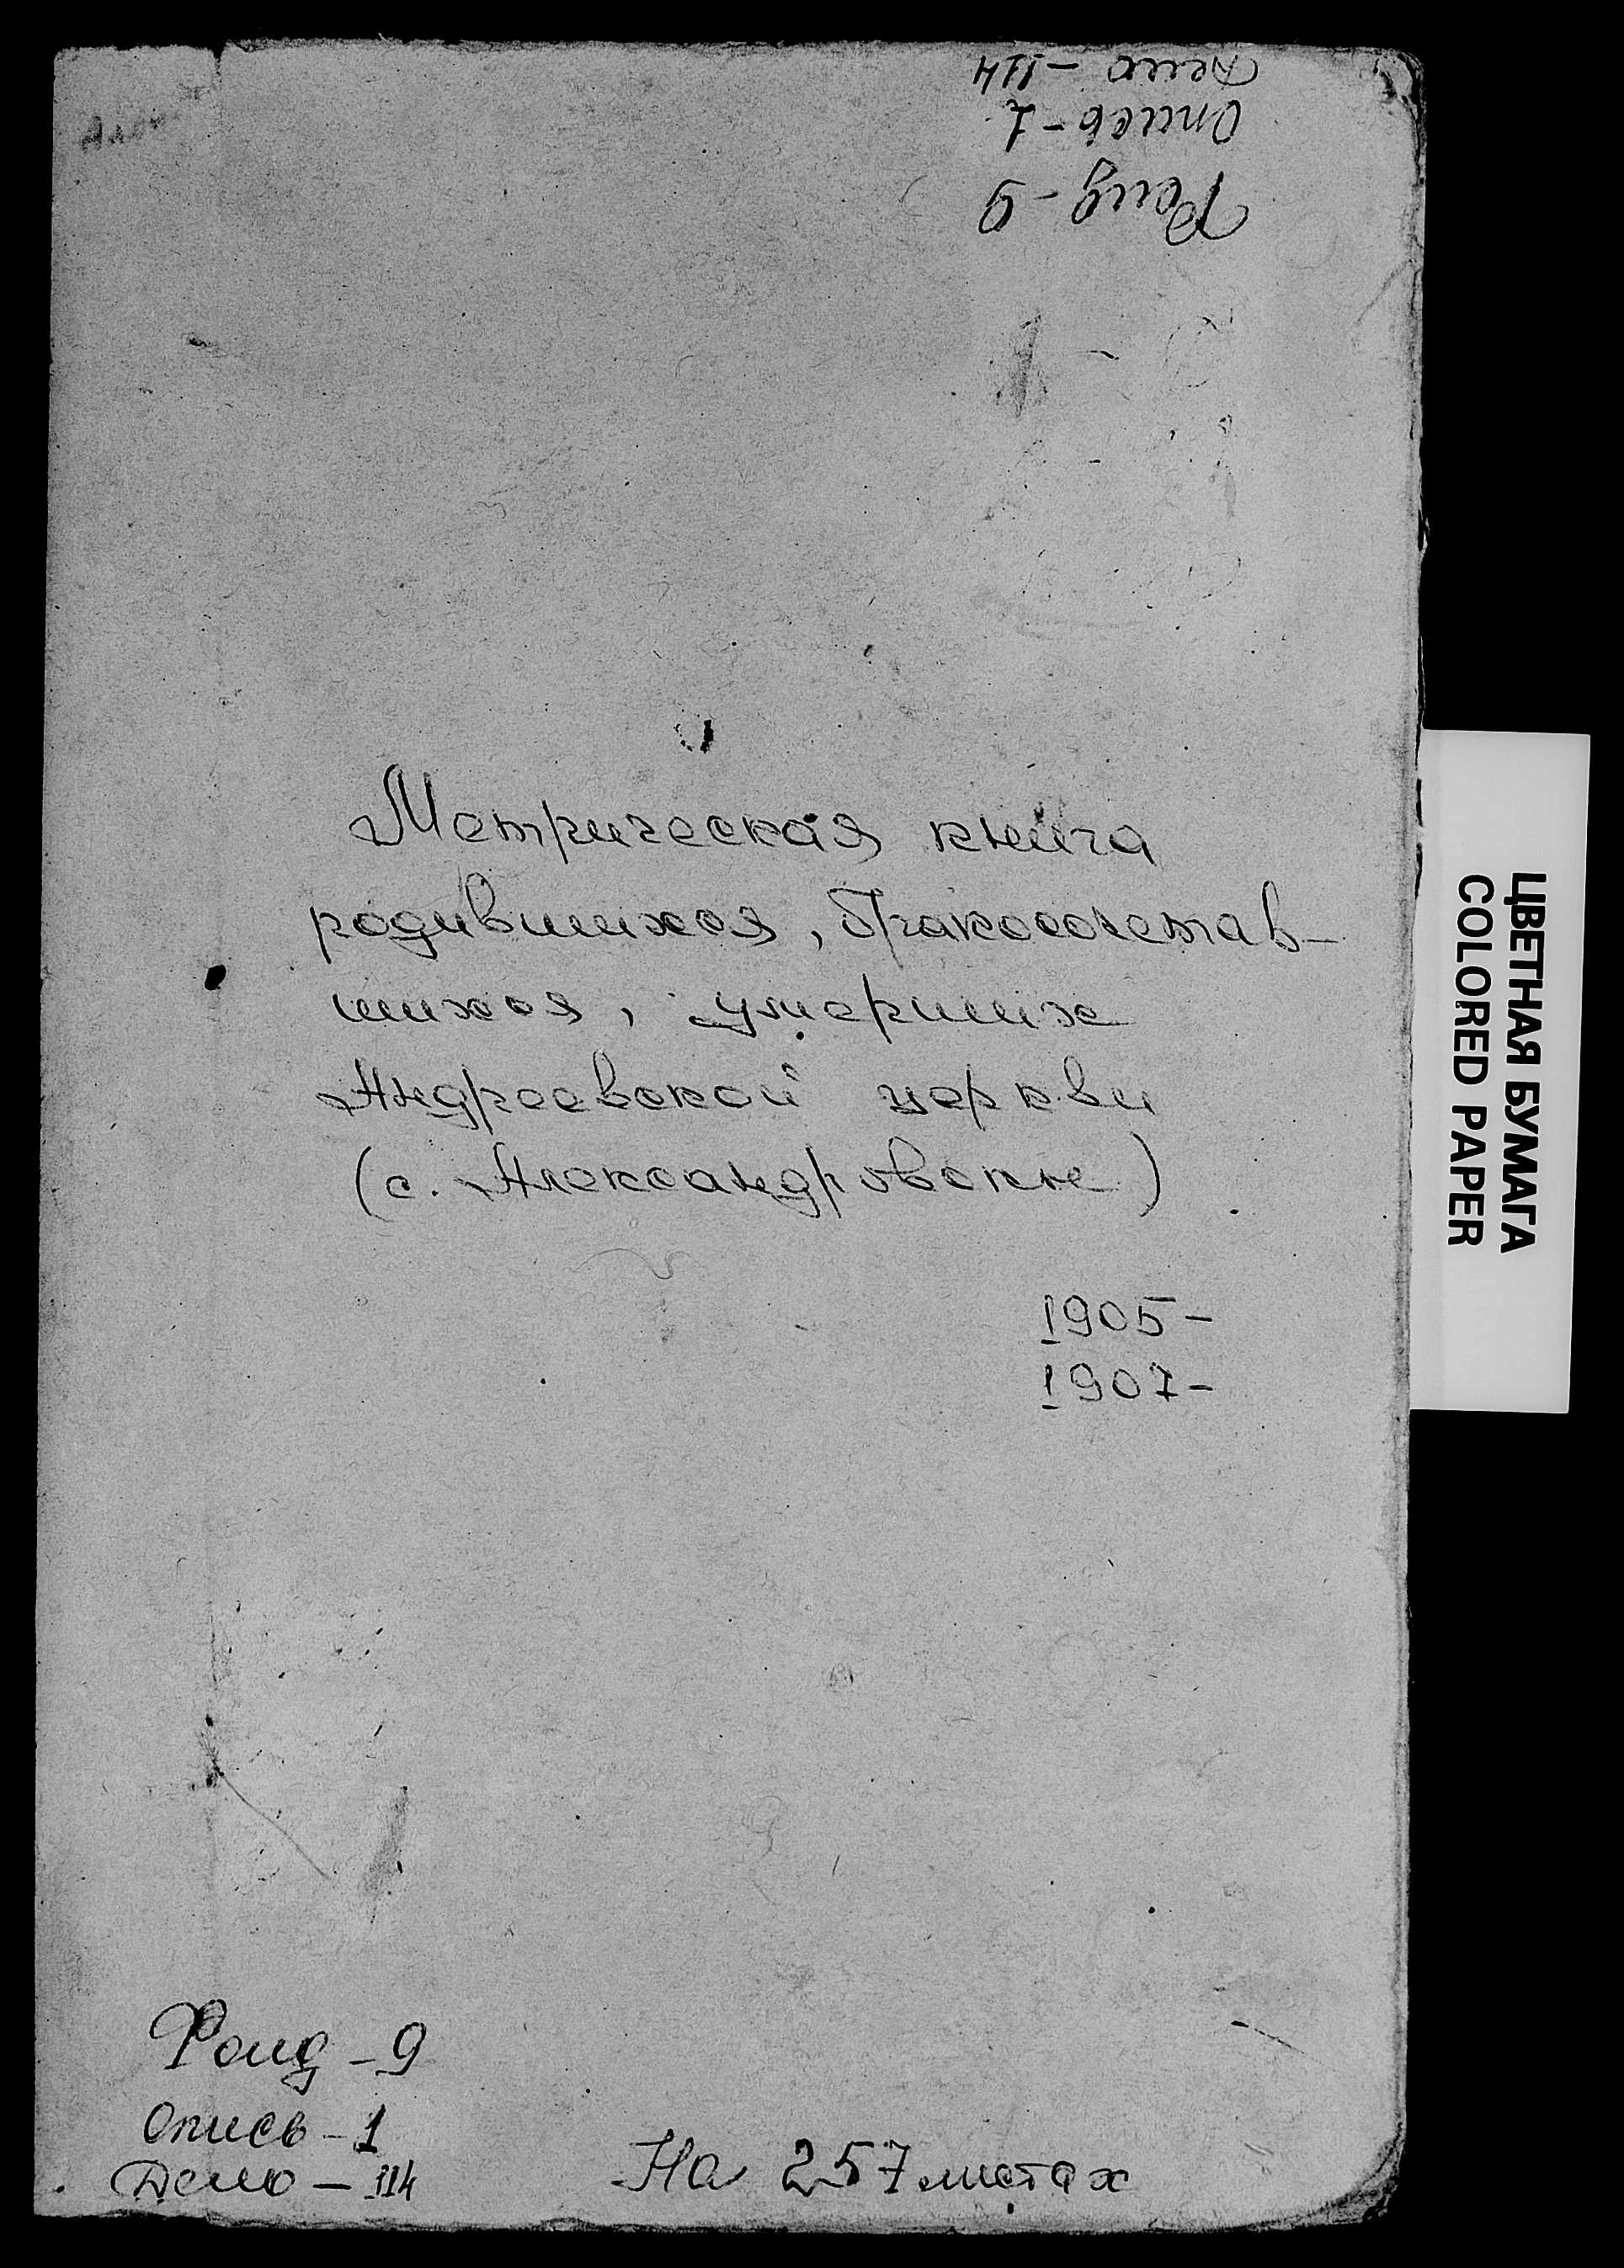 Дело - 114
Опись - 1
Фонд - 9
Метрическая книга
родившихся, бракосочетав-
шихся, умерших
Андреевской церкви
(с. Александровске)
1905-
1907-
ЦВЕТНАЯ БУМАГА
COLORED PAPER
Фонд - 9
Опись - 1
Дело - 114
На 257 листах